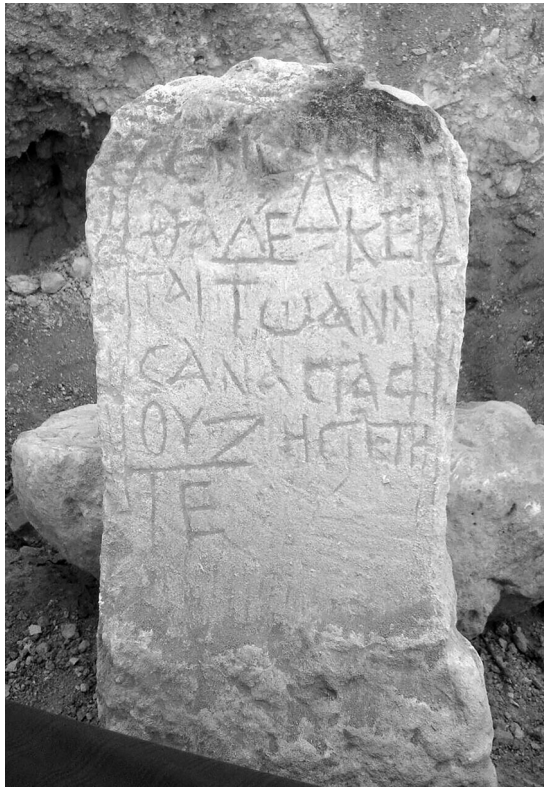 ΘΑΔΕ ΚΕΙ
ΤΑΙ ΙωΑΝΝ
CΑΝΑCΤΑCΙ
ΟΥ ΖΗCΕΤΗ
ΤΕ